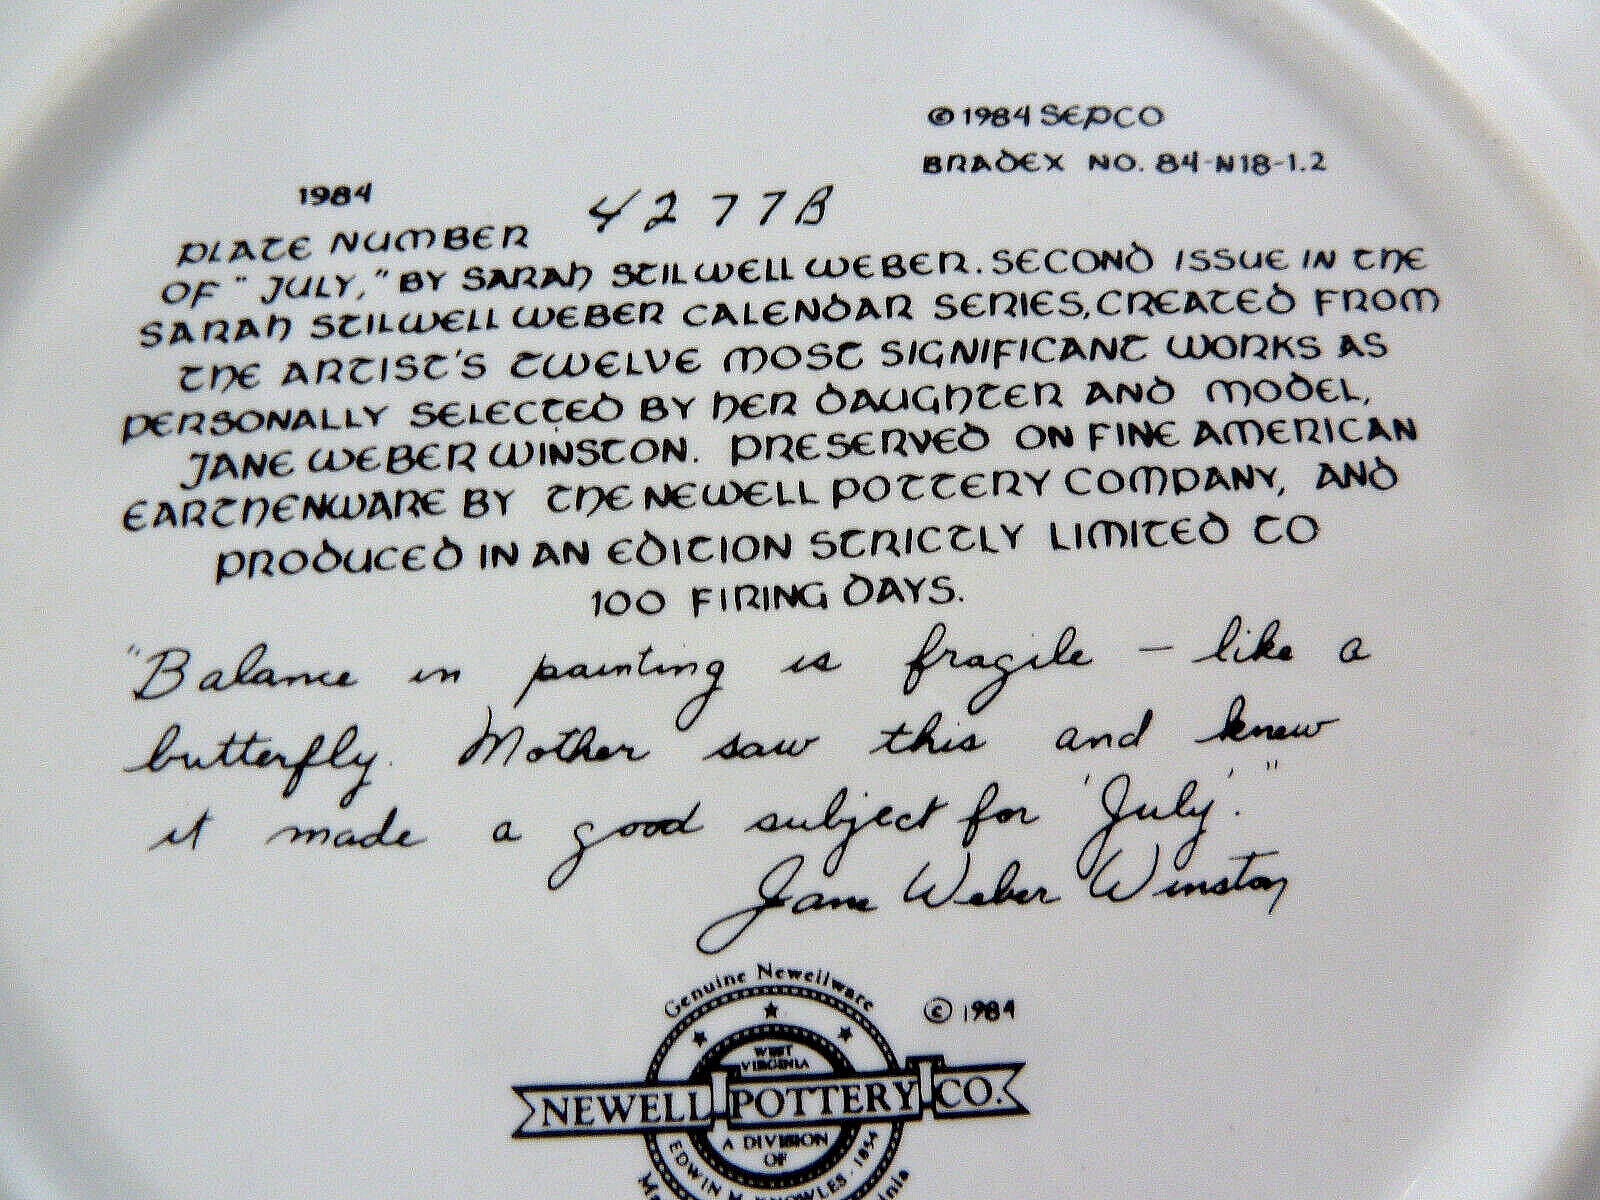 © 1984 SEPCO
BRADEX NO. 84-N18-1.2
1984
PLATE NUMBER 4277B
OF "JULY," BY SARAH STILWELL WEBER. SECOND ISSUE IN THE
SARAH STILWELL WEBER CALENDAR SERIES, CREATED FROM
THE ARTIST'S TWELVE MOST SIGNIFICANT WORKS AS
PERSONALLY SELECTED BY HER DAUGHTER AND MODEL,
JANE WEBER WINSTON. PRESERVED ON FINE AMERICAN
EARTHENWARE BY THE NEWELL POTTERY COMPANY, AND
PRODUCED IN AN EDITION STRICTLY LIMITED TO
100 FIRING DAYS.
"Balance in painting is fragile – like a
butterfly. Mother saw this and knew
it made a good subject for 'July'."
Jane Weber Winston
Genuine Newellware
© 1984
WEST
VIRGINIA
NEWELL POTTERY CO.
A DIVISION
OF
EDWIN M. KNOWLES · 1854